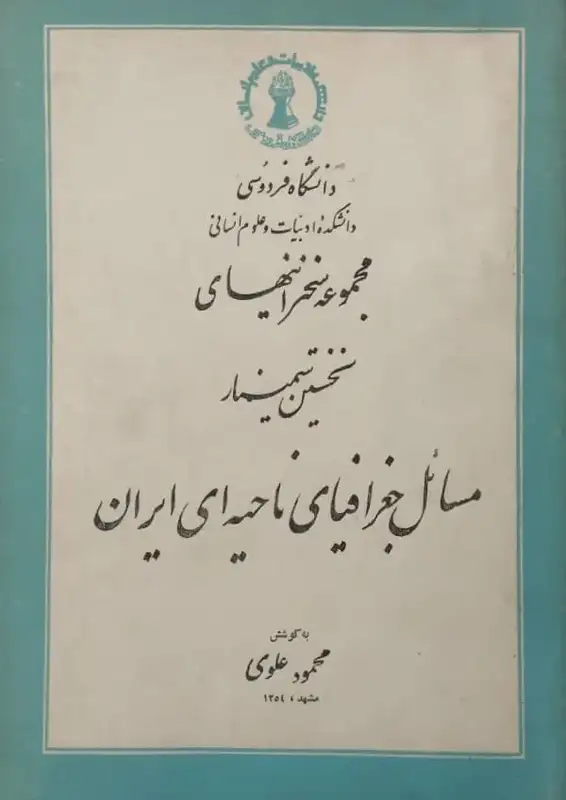 دانشگاه فردوسی
دانشکدهٔ ادبیات و علوم انسانی
مجموعه سخنرانیهای
نخستین سمینار
مسائل جغرافیای ناحیه ای ایران
به کوشش
محمود علوی
مشهد، ۱۳۵٤